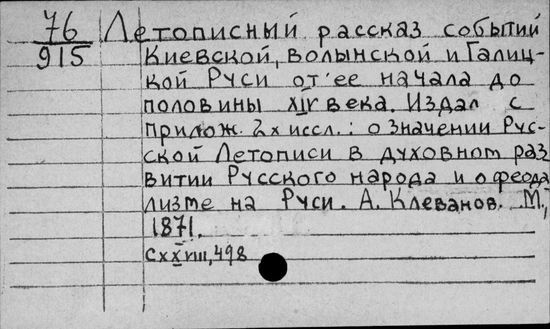 76 Летописный рассказ событий
915 Киевской, Волынской и Галиц-
кой Руси от ее начала до
половины XIV века. Издал с
прилож. 2х иссл.: о значении Рус-
ской Летописи в духовном раз
витии Русского народа и о феода
лизме на Руси. А. Клеванов. М.,
1871.
CXXVIII, 498